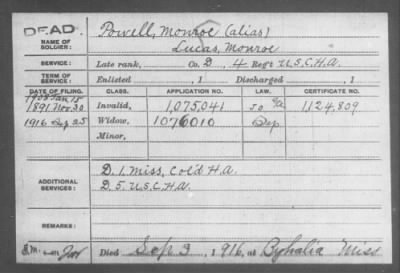 DEAD.
NAME OF SOLDIER: Powell, Monroe (alias)
Lucas, Monroe
SERVICE: Late rank, Co. D, 4 Reg't U.S.C.H.A.
TERM OF SERVICE: Enlisted , 1 Discharged , 1
DATE OF FILING. CLASS. APPLICATION NO. LAW. CERTIFICATE NO.
1908 Jan 15
1891 Nov. 30 Invalid, 1,075,041 1,124,809
1916 Sep 25 Widow, 1076010
Minor,
ADDITIONAL SERVICES: D. 1. Miss. Col'd H.A.
D. 5. U.S.C.H.A.
REMARKS:
Died Sep 3, 1916, at Byhalia Miss